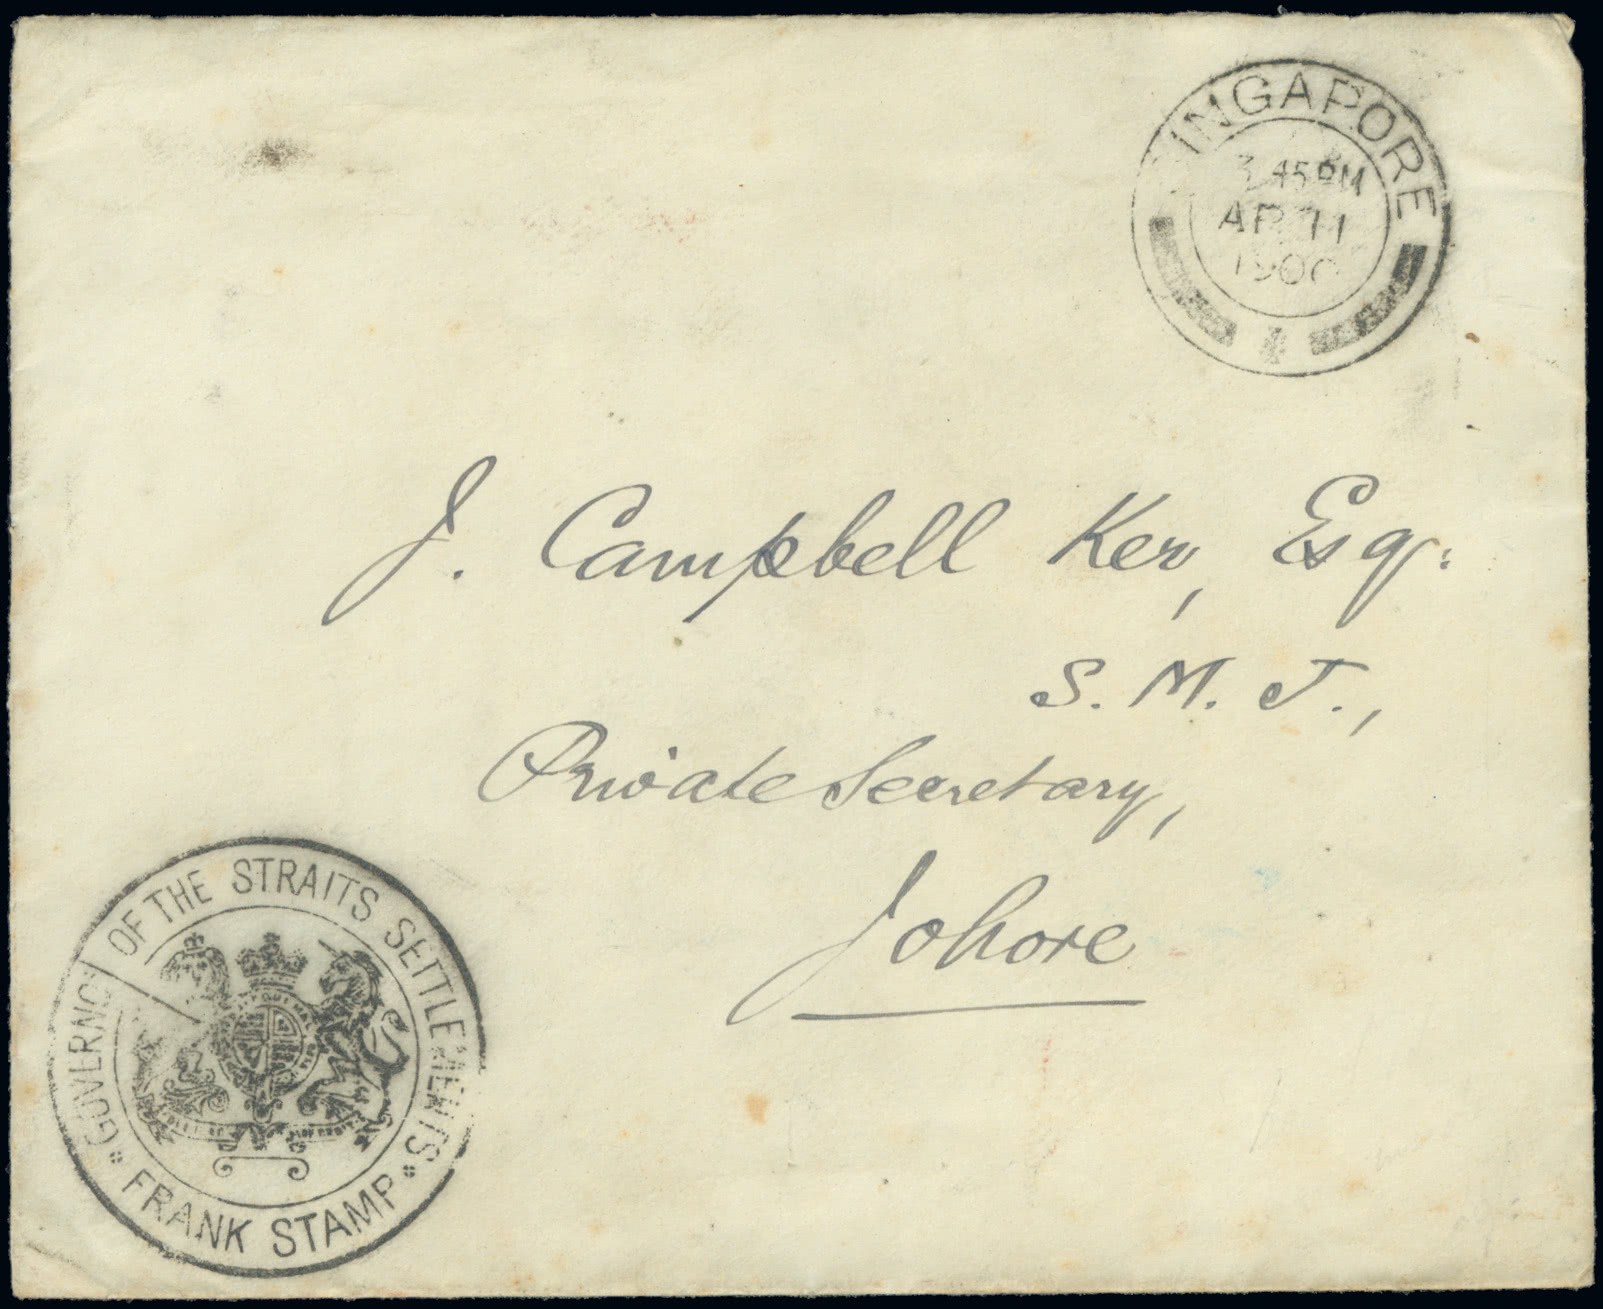 SINGAPORE
3.45 PM
AP 11
1900
J. Campbell Ker, Esq:
S. M. J.,
Private Secretary,
Johore
GOVERNOR OF THE STRAITS SETTLEMENTS
FRANK STAMP